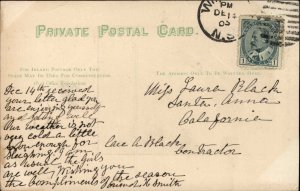 PM
DE 14
03
N.S.
PRIVATE POSTAL CARD.
FOR INLAND POSTAGE ONLY THE
SPACE MAY BE USED FOR COMMUNICATION.
THE ADDRESS ONLY TO BE WRITTEN HERE.
Dec 14th received
your letter glad you
are enjoying yourself
and 
Our weather is not
very cold a little
snow enough for
sleighing I am
as usual the girls
are well, wishing you
the compliments of the season
Smith
Miss Laura Black
Santa Anna
California
care A Black
Contractor